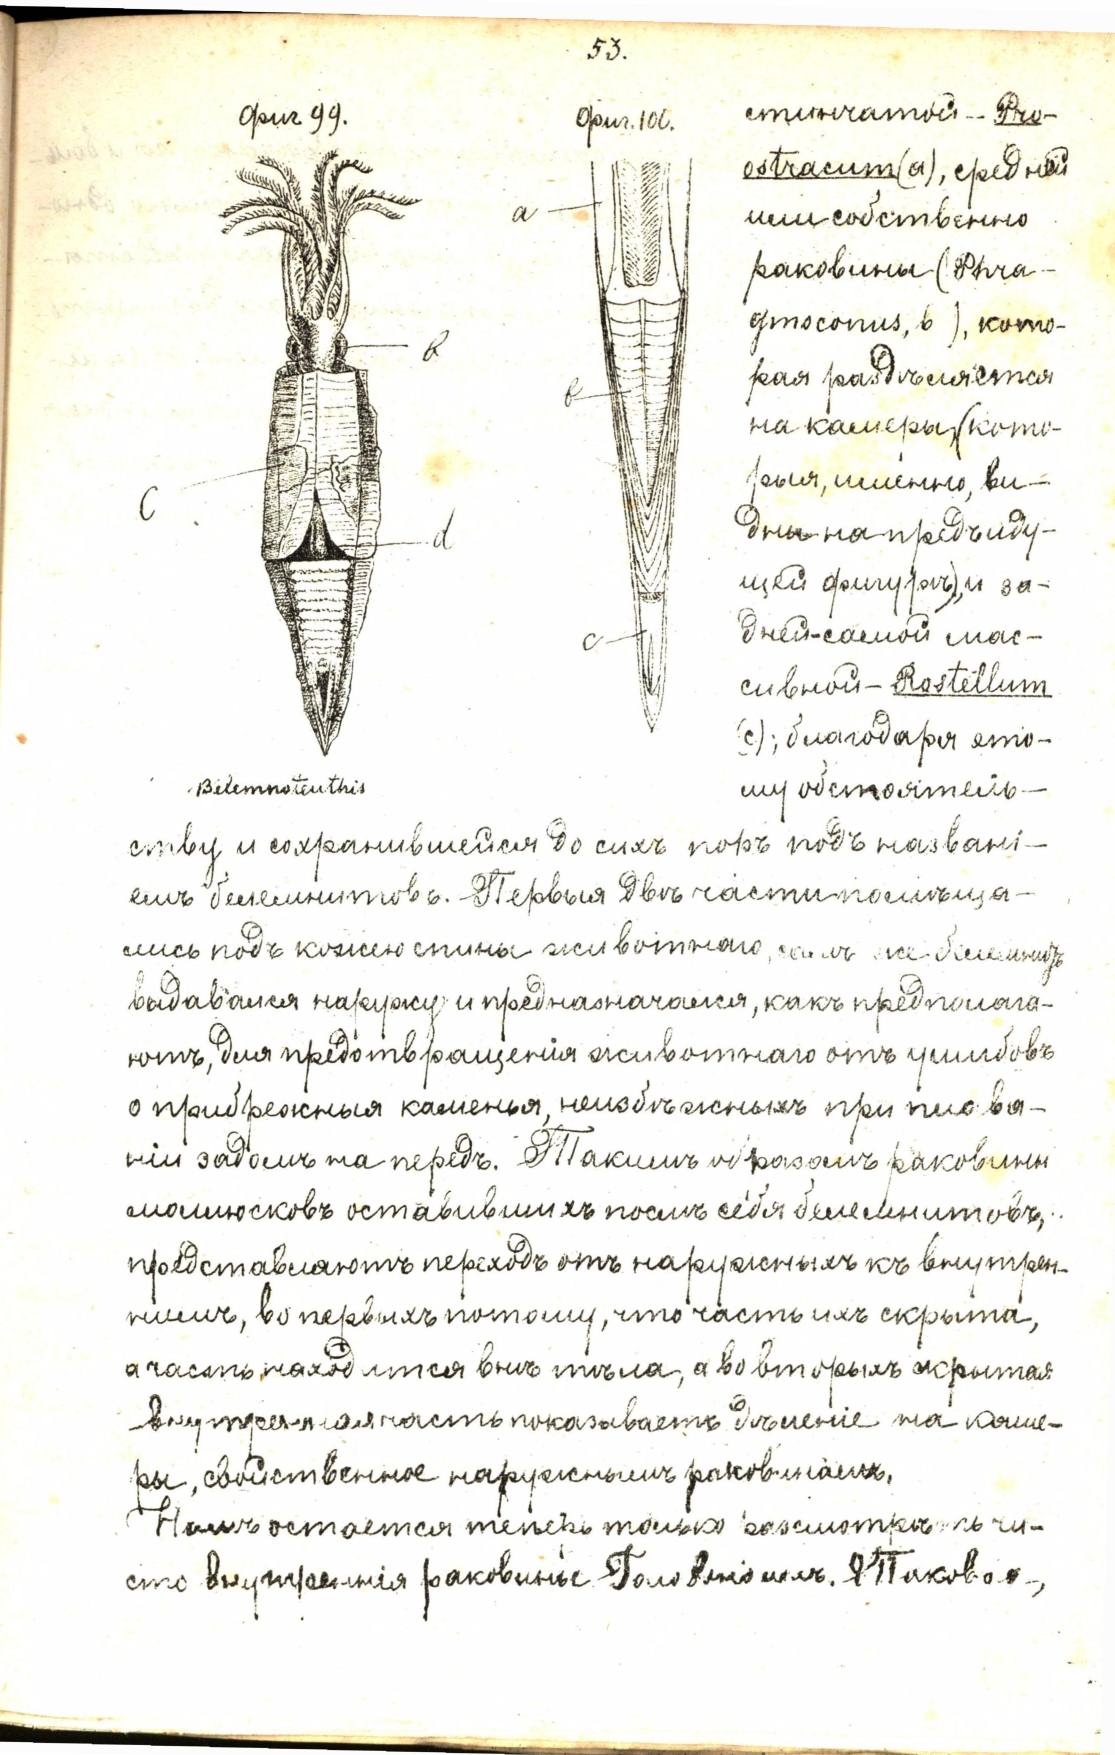 53.
фиг 99.
фиг. 100.
стинчатой – Pro-
ostracum (a), средней
или собственно
раковины (Phra-
gmoconus, b), кото-
рая раздѣляется
на камеры, (кото-
рыя, именно, ви-
дны на предъиду-
щей фигурѣ), и за-
дней-самой мас-
сивной – Rostellum
(c); благодаря это-
му обстоятель-
a
b
c
b
C
d
Belemnoteuthis
ству и сохранившейся до сихъ поръ подъ названі-
емъ белемнитовъ. Первыя двѣ части помѣща-
лись подъ кожею спины животнаго, самъ же белемнитъ
выдавался наружу и предназначался, какъ предполага-
ютъ, для предотвращенія животнаго отъ ушибовъ
о прибрежныя каменья, неизбѣжныхъ при плава-
ніи задомъ на передъ. Такимъ образомъ раковины
молюсковъ оставившихъ послѣ себя белемнитовъ,
представляютъ переходъ отъ наружныхъ къ внутрен-
нимъ, во первыхъ потому, что часть ихъ скрыта,
а часть находится внѣ тѣла, а во вторыхъ скрытая
внутренняя часть показываетъ дѣленіе на каме-
ры, свойственное наружнымъ раковинамъ.
Намъ остается теперь только разсмотрѣть чи-
сто внутреннія раковины Головоногихъ. Такова-,